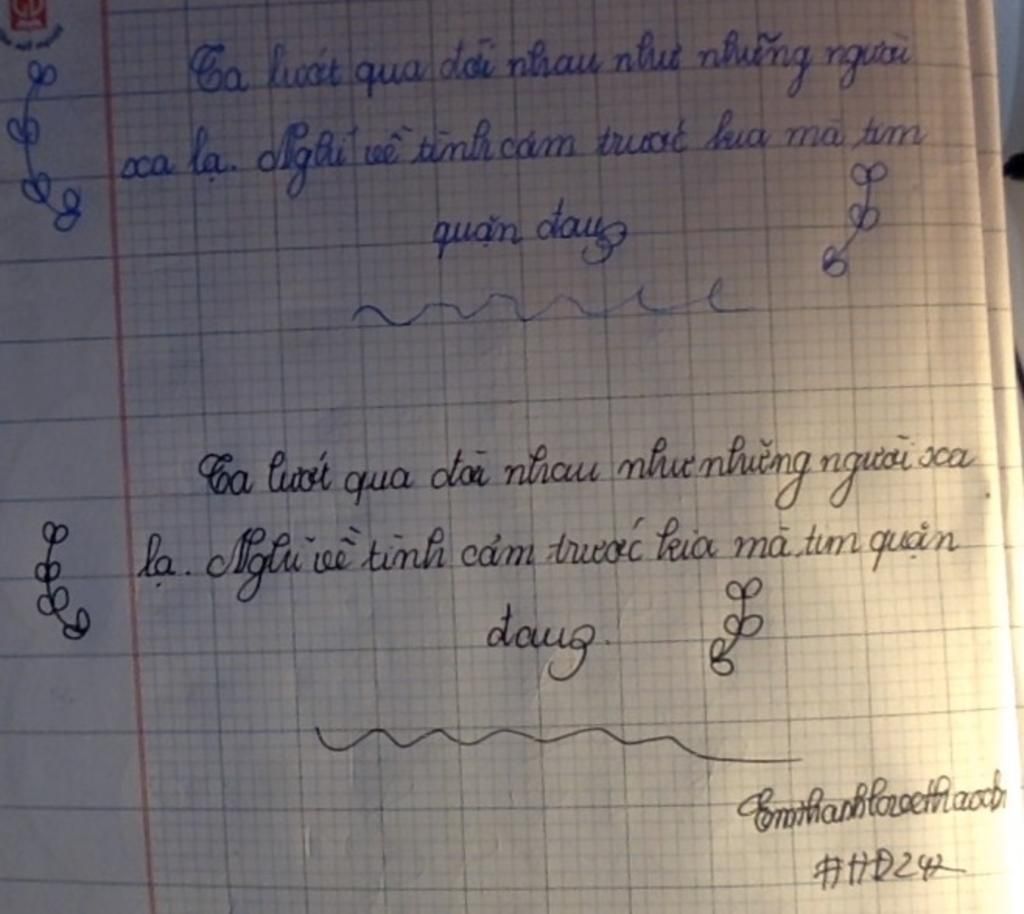 Ta lướt qua đời nhau như những người
xa lạ. Nghĩ về tình cảm trước kia mà tim
quặn đau
Ta lướt qua đời nhau như những người xa
lạ. Nghĩ về tình cảm trước kia mà tim quặn
đau
#HD24